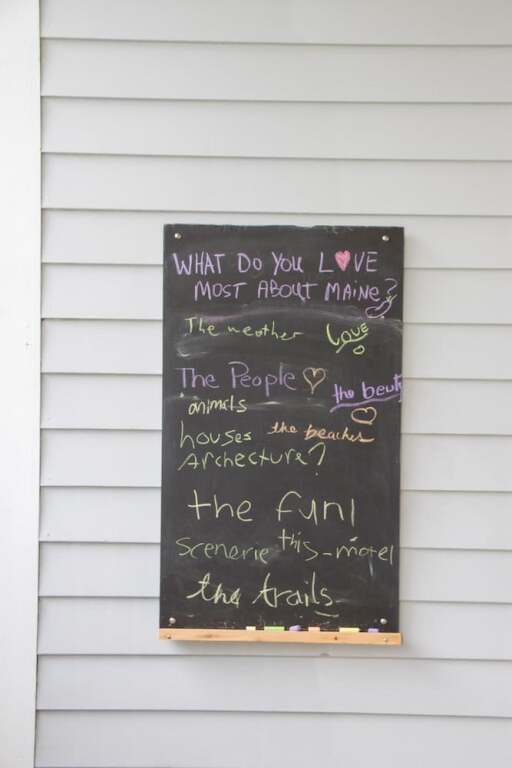 WHAT DO YOU LOVE
MOST ABOUT MAINE?
The weather
Love
The People
the beuty
animals
houses
the beaches
Archecture?
the fun!
scenerie
this-motel
the trails